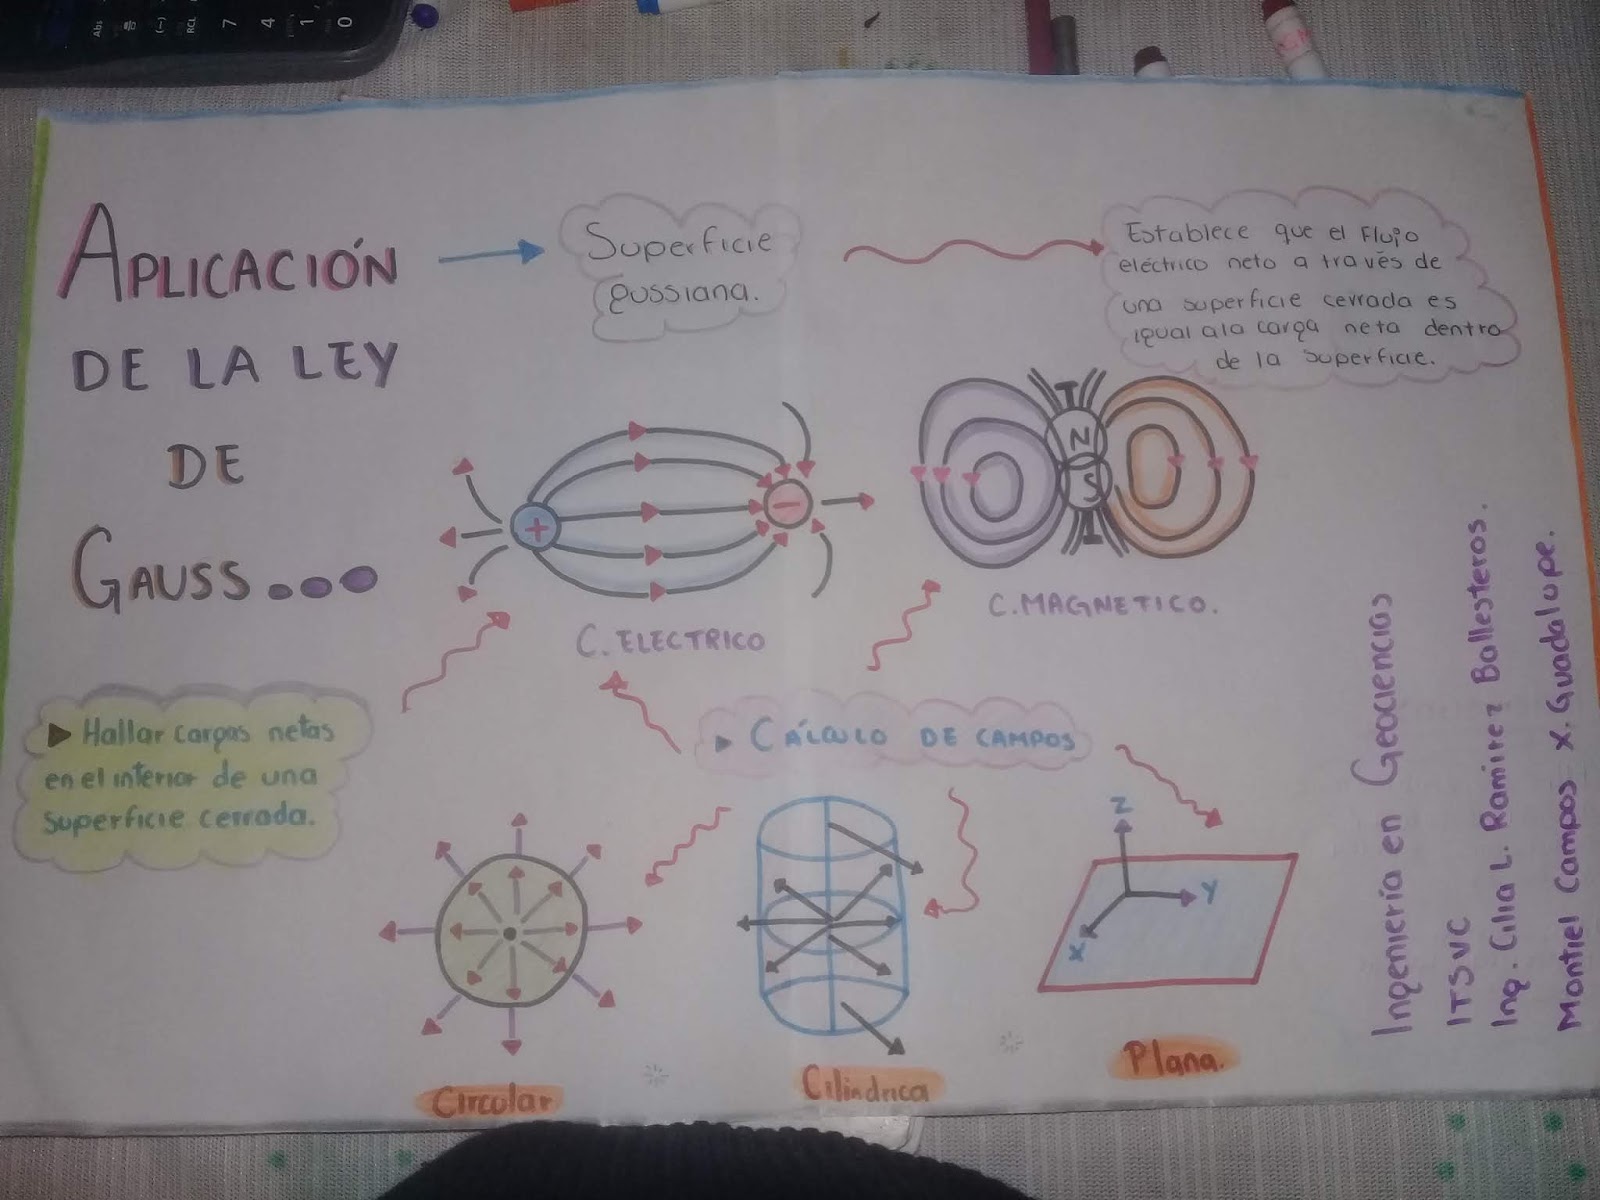 APLICACIÓN
DE LA LEY
DE
GAUSS...
Superficie
gussiana.
Establece que el Flujo
eléctrico neto a través de
una superficie cerrada es
igual a la carga neta dentro
de la superficie.
+
−
C. ELECTRICO
N
S
C. MAGNETICO.
► Hallar cargas netas
en el interior de una
superficie cerrada.
► CÁLCULO DE CAMPOS
Circular
Cilindrica
Z
Y
X
Plana.
Ingeniería en Geociencias
ITSVC
Ing. Cilia L. Ramirez Ballesteros.
Montiel Campos X. Guadalupe.
Abs
(−)
RCL
7
4
1
0